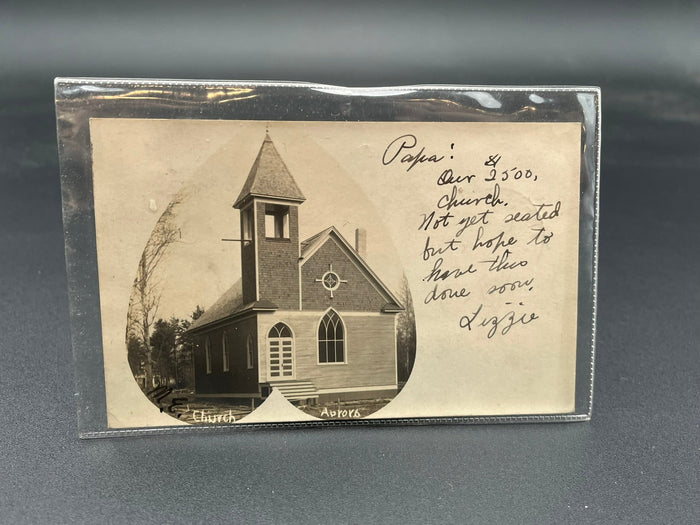 Papa!
Our $2500,
church.
Not yet seated
but hope to
have this
done soon.
Lizzie
M.E. Church Aurora